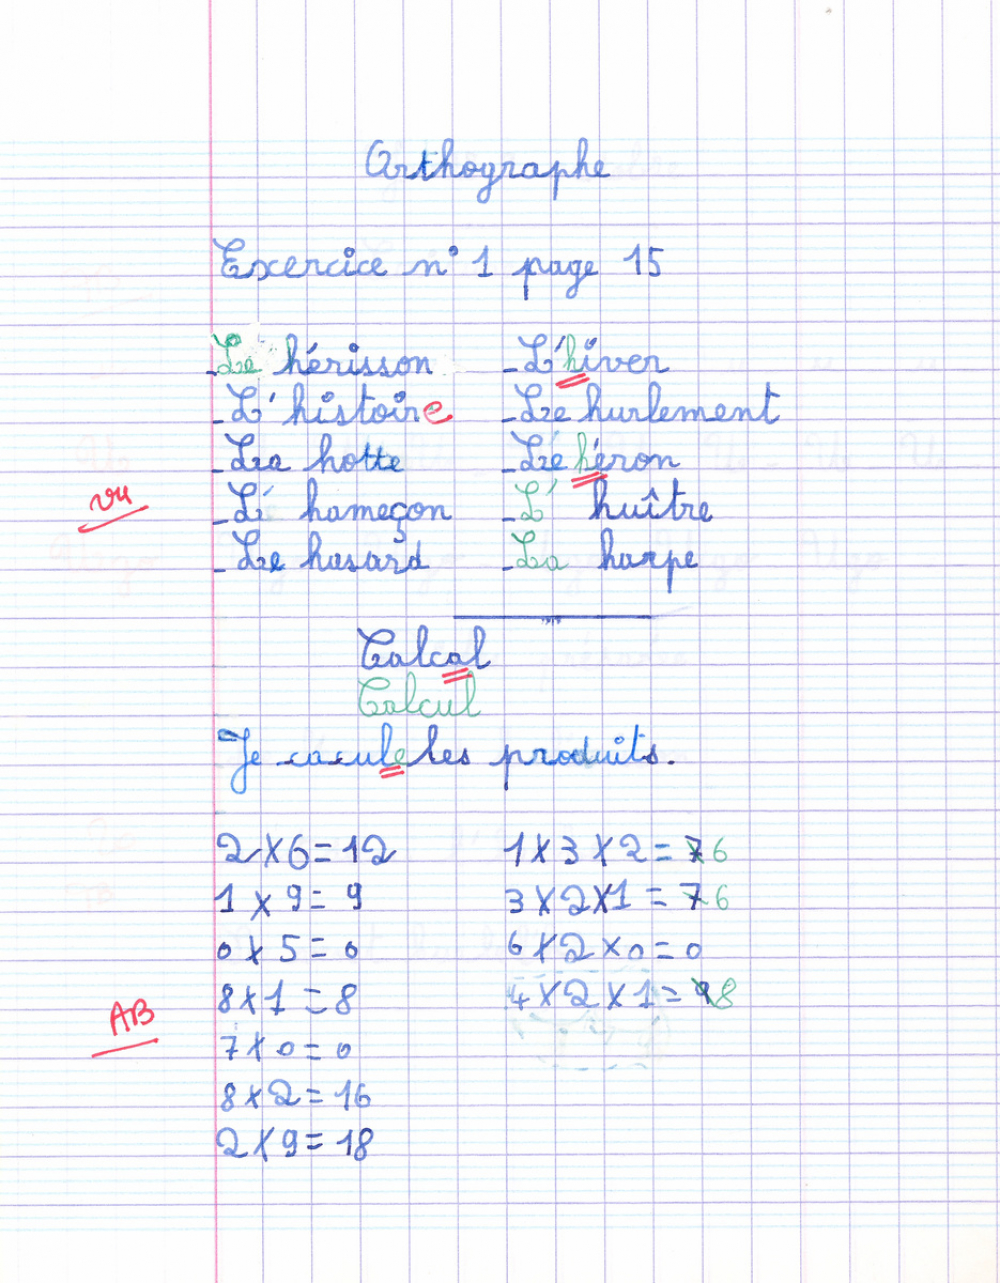 Orthographe
Exercice n° 1 page 15
- Le hérisson
- L'histoire
- La hotte
- L' hameçon
- Le hasard
- L'hiver
- Le hurlement
- Le héron
- L' huître
- La harpe
vu
Calcal
Calcul
Je cacule les produits.
2 X 6 = 12
1 x 9 = 9
0 x 5 = 0
8 x 1 = 8
7 x 0 = 0
8 x 2 = 16
2 X 9 = 18
1 X 3 X 2 = 7 6
3 X 2 X 1 = 7 6
6 X 2 x 0 = 0
4 X 2 X 1 = 9 8
AB